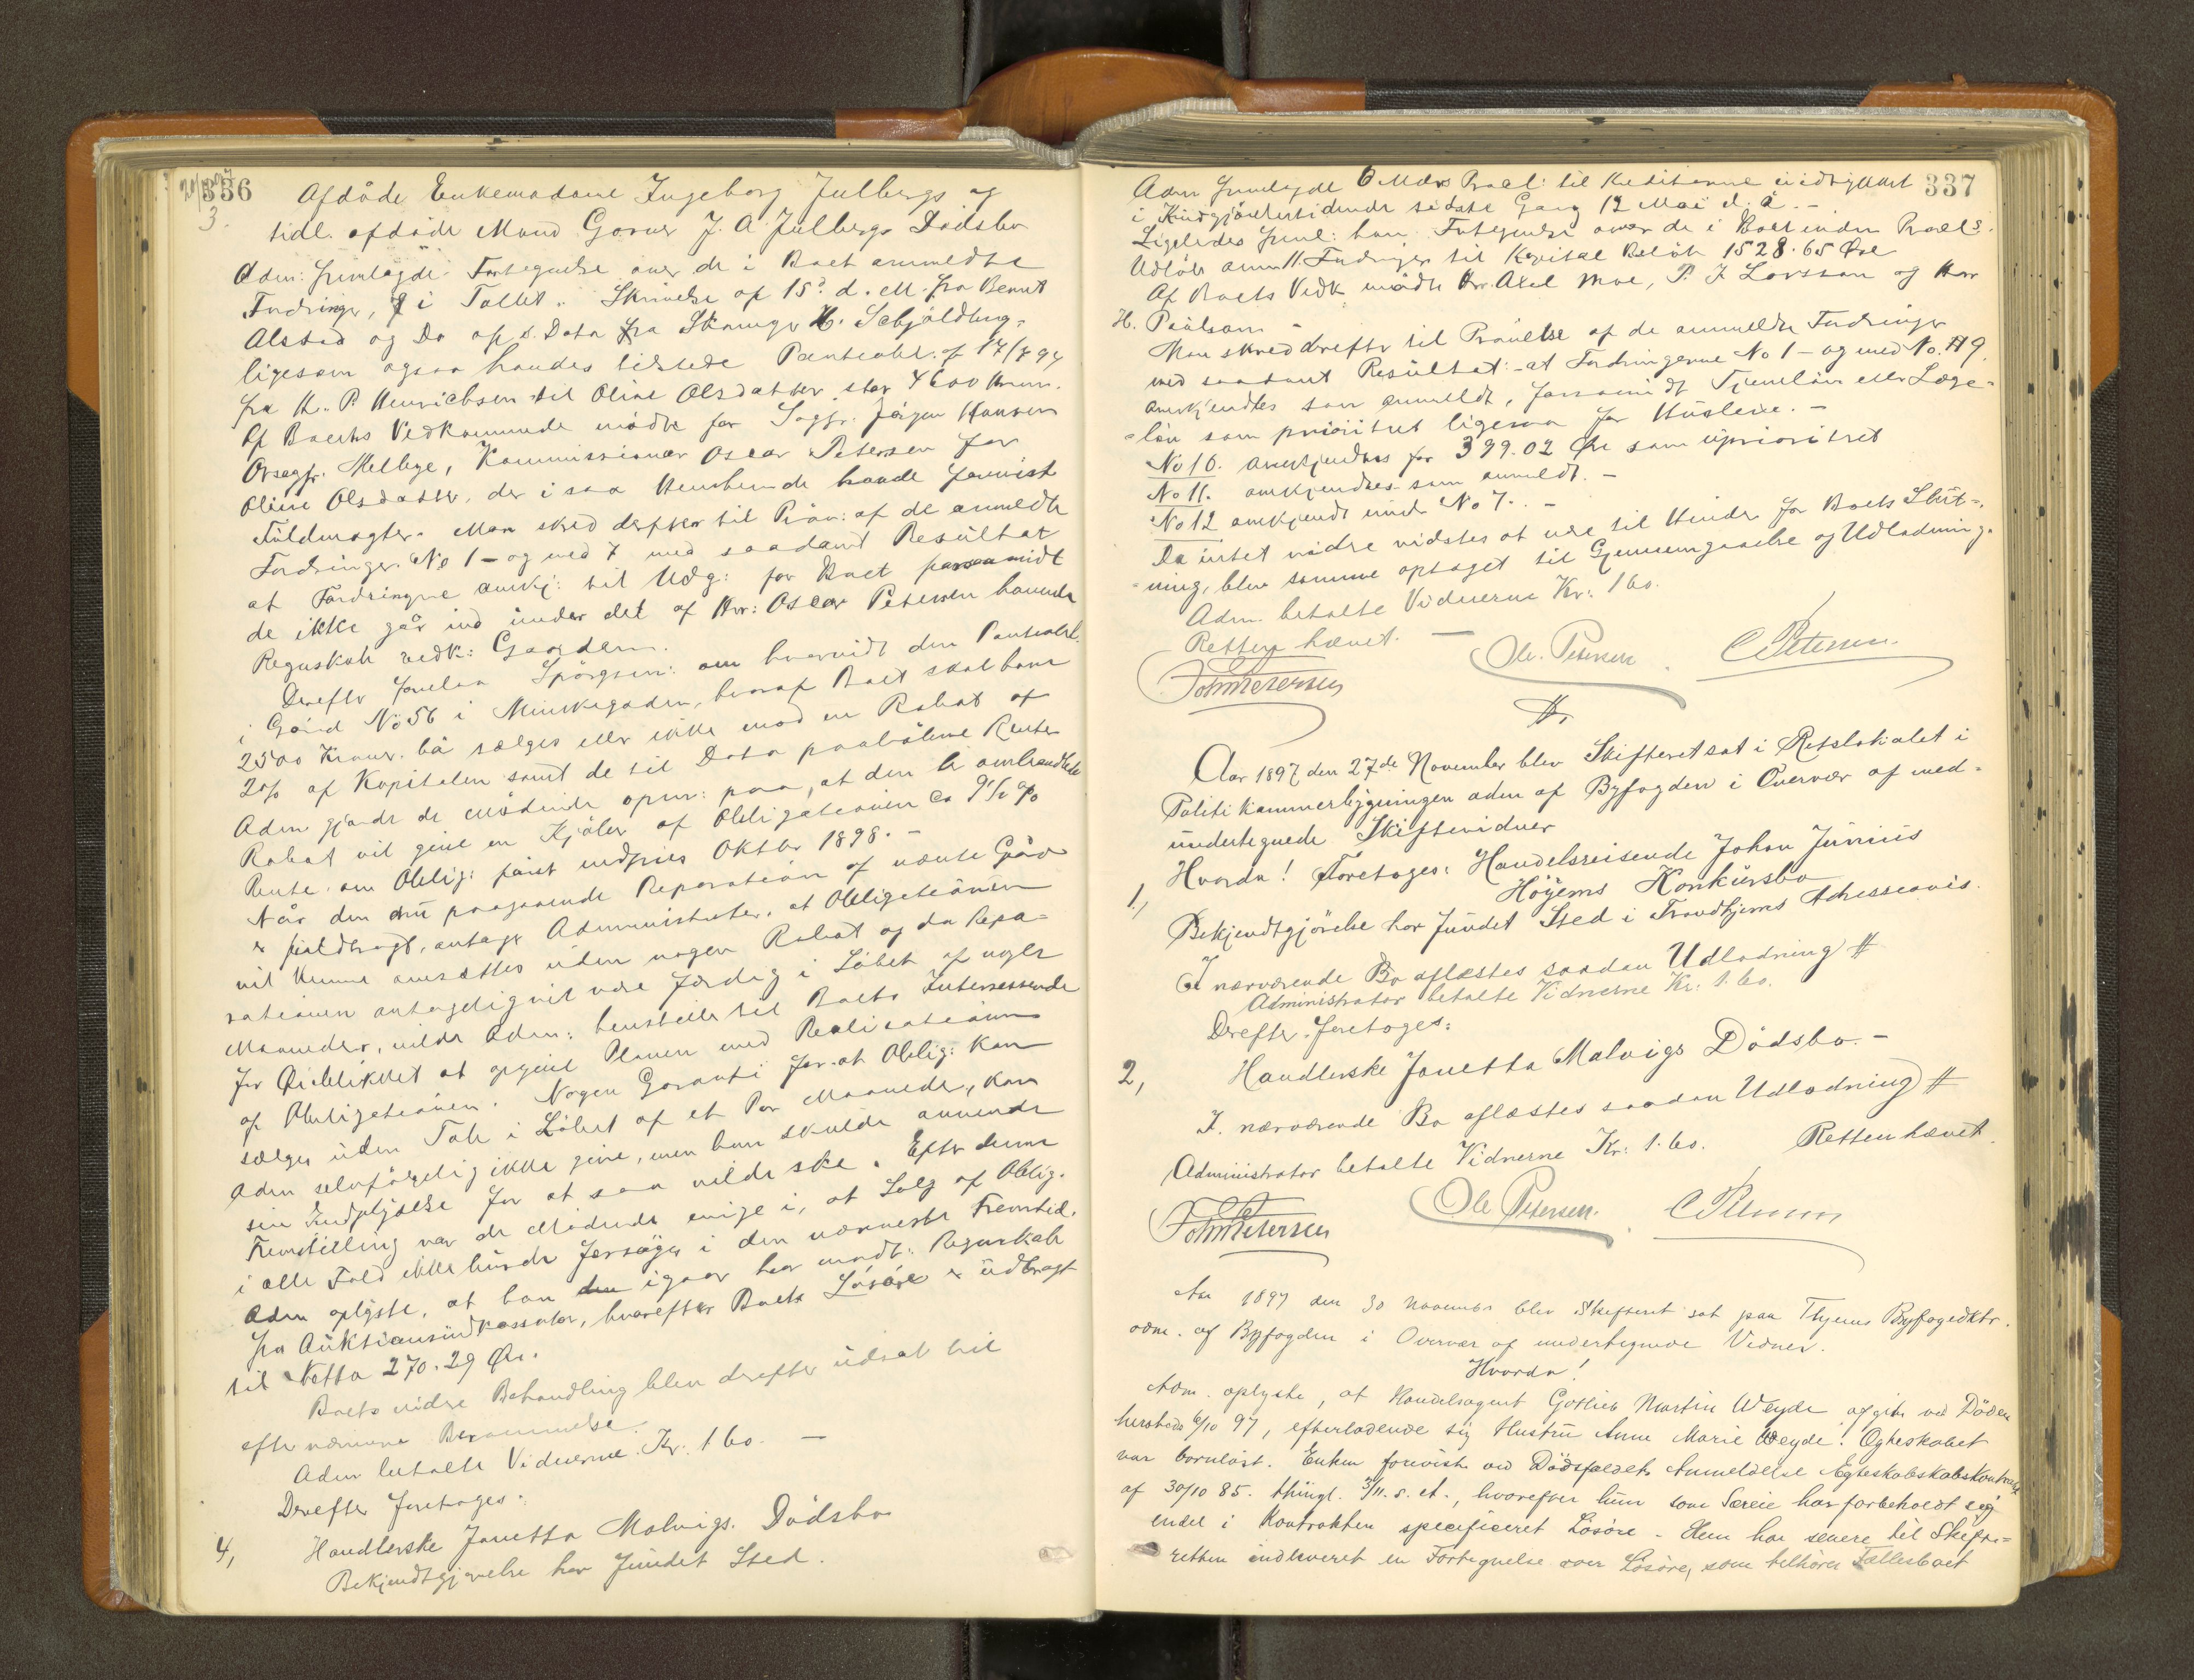 336
3.
Afdøde Enkemadame Ingeborg Julbergs og
tidl. afdøde Mand Garver J. A. Julbergs Dødsbo
Adm: fremlagde Fortegnelse over de i Boet anmeldte
Fordringer, 7 i Tallet. Skrivelse af 15de d. M. fra Bernt
Alstad og Do af s. Dato fra H. Schjøldberg,
ligesom ogsaa havdes tilstede Panteobl. af 17/7 94
fra K. P. Henrichsen til Oline Olsdatter stor 4600 Kroner.
Af Boets Vedkommende mødte for Sagf. Jørgen Hansen
Orsagf. Melbye, Kommissionær Oscar Petersen for
Oline Olsdatter, der i saa Henseende havde forevist
Fuldmagter. Man skred derefter til Prøv: af de anmeldte
Fordringer. No 1 - og med 7 med saadant Resultat
at Fordringerne anerkj: til Udg: for Boet forsaavidt
de ikke går ind under det af Hr: Oscar Petersen havende
Regnskab vedk: Gaarden.
Derefter forelaa Spørgsm: om hvorvidt den Panteobl.
i Gård No 56 i Munkegaden, hvoraf Boet skal have
2500 Kroner. bør sælges eller ikke mod en Rabat af
2% af Kapitalen samt de til Dato paaløbne Renter
Adm gjorde de mødende opm: paa, at den her omhandlede
Rabat vil give en Kjøber af Obligationen ca 9½ %
Rente om Oblig: først indfries Oktbr 1898. -
Når den nu paagaaende Reparation af nævnte Gård
er fuldbragt, antager Administrator, at Obligationen
vil kunne omsættes uden nogen Rabat og da Repa-
rationen antagelig vil være færdig i Løbet af nogle
Maaneder, vilde Adm: henstille til Boets Interessende
for Øieblikket at opgive Planen med Realisationen
af Obligationen. Nogen Garanti for at Oblig: kan
sælges uden Tab i Løbet af et Par Maaneder, kan
Adm selvfølgelig ikke give, men han skulde anvende
sin Indflydelse for at saa vilde ske. Efter denne
Fremstilling var de Mødende enige i, at Salg af Oblig.
i alle Fald ikke burde forsøges i den nærmeste Fremtid.
Adm oplyste, at han igaar har modt: Regnskab
fra Auktionsindkassator, hvorefter Boets Løsøre er udbragt
til Netto 270.29 Øre.
Boets videre Behandling blev derefter udsat til
efter nærmere Berammelse.
Adm betalte Vidnerne Kr. 1 60. -
Derefter foretoges:
4, Handlerske Janetta Malvigs Dødsbo
Bekjendtgjørelse har fundet Sted.
337
Adm fremlagde 6 Mdrs Procl: til Kreditorerne indrykket
i Kundgjørelsestidende sidste Gang 12 Mai d. å. -
Ligeledes freml: han Fortegnelse over de i Boet inden Procls
Udløb anm. 11 Fordringer til Kapital Beløb 1528.65 Øre
Af Boets Vedk mødte Hr. Axel Moe, P. J. Larsson og Herr
H. Paulsen -
Man skred derefter til Prøvelse af de anmeldte Fordringer
med saadant Resultat: at Fordringerne No 1 - og med No. 9
anerkjendtes som anmeldt, forsaavidt Tjenerløn eller Læge-
løn som prioritret ligesaa for Husleie. -
No 10. anerkjendtes for 399.02 Øre som uprioritret
No 11. anerkjendtes som anmeldt. -
No 12 anerkjendt under No 7. -
Da intet videre vidstes at være til Hinder for Boets Slut-
ning, blev samme optaget til Gjennemgaaelse og Udlodning.
Adm. betalte Vidnerne Kr: 1 60.
Retten hævet. -
Ole Petersen. C Petersen
Aar 1897 den 27de November blev Skifteret sat i Retslokalet i
Politikammerbygningen adm af Byfogden i Overvær af med-
undertegnede Skiftevidner
Hvorda! Foretoges: Handelsreisende Johan Junius
1, Høyems Konkursbo
Bekjendtgjørelse har fundet Sted i Trondhjems Adresseavis.
I nærværende Bo aflæstes saadan Udlodning #
Administrator betalte Vidnerne Kr: 1.60.
Derefter foretoges:
2, Handlerske Janetta Malvigs Dødsbo. -
I nærværende Bo aflæstes saadan Udlodning #
Administrator betalte Vidnerne Kr: 1.60. Retten hævet.
Ole Petersen. C Petersen
Aar 1897 den 30 November blev Skifteret sat paa Thjems Byfogedktr.
adm. af Byfogden i Overvær af undertegnede Vidner.
Hvorda!
Adm. oplyste, at Handelsagent Gottlieb Martin Weyde afgik ved Døden
hersteds 6/10 97, efterladende sig Hustru Anne Marie Weyde. Ægteskabet
var barnløst. Enken foreviste ved Dødsfaldets Anmeldelse Ægteskabskabskontrakt
af 30/10 85. thingl. 3/11. s. A., hvorefter hun som Særeie har forbeholdt sig
endel i Kontrakten specificeret Løsøre. Hun har senere til Skifte-
retten indleveret en Fortegnelse over Løsøre, som tilhører Fællesboet